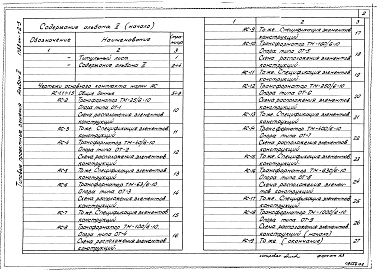 Содержание альбома II (начало)
Обозначение
Наименование
Стра-
ница
1
2
3
Титульный лист
1
Содержание альбома II
2÷4
Чертежи основного комплекта марки АС
АС-1÷1.5
Общие данные
5÷9
АС-2
Трансформатор ТМ-25/6-10
Опора типа ОТ-1
Схема расположения элементов
конструкций
10
АС-3
То же. Спецификация элементов
конструкций
11
АС-4
Опора типа ОТ-2
Схема расположения элементов
конструкций
12
АС-5
То же. Спецификация элементов
конструкций
13
АС-6
Опора типа ОТ-3
Схема расположения элементов
конструкций
14
АС-7
То же. Спецификация элементов
конструкций
15
АС-8
Трансформатор ТМ-100/6-10
Опора типа ОТ-4
Схема расположения элементов
конструкций
16
2
1
2
3
АС-9
То же. Спецификация элементов
конструкций
17
АС-10
Трансформатор ТМ-160/6-10
Опора типа ОТ-5
Схема расположения элементов
конструкций
18
АС-11
То же. Спецификация элементов
конструкций
19
АС-12
Трансформатор ТМ-250/6-10
Опора типа ОТ-6
Схема расположения элементов
конструкций
20
АС-13
То же. Спецификация элементов
конструкций
21
АС-14
Трансформатор ТМ-400/6-10
Опора типа ОТ-7
Схема расположения элементов
конструкций
22
То же. Спецификация элементов
конструкций
23
АС-16
Трансформатор ТМ-630/6-10
Опора типа ОТ-8
Схема расположения элемен-
тов конструкций
24
АС-17
То же. Спецификация элементов
конструкций
25
АС-18
Схема расположения элементов
конструкций (начало)
26
АС-19
То же (окончание)
27
формат А3